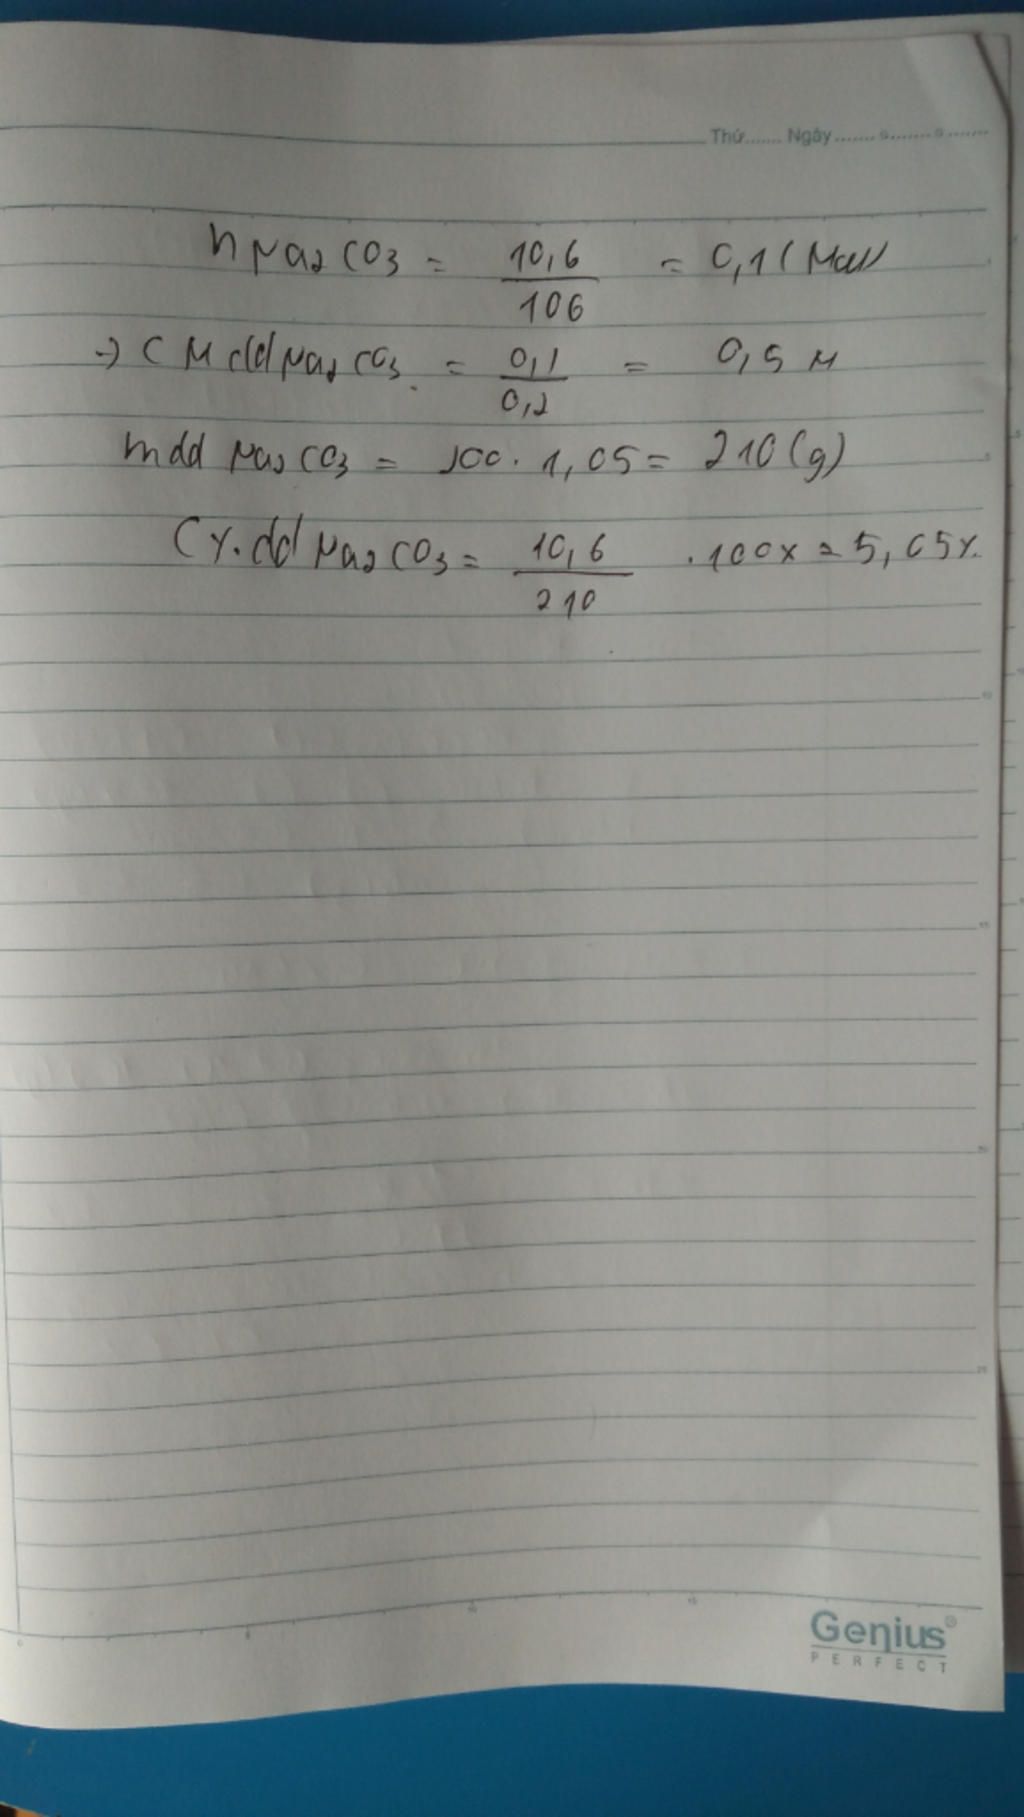 Thứ....... Ngày....... o....... o.......
n Na2CO3 = 10,6 / 106 = 0,1 (Mol)
→ CM dd Na2CO3 = 0,1 / 0,2 = 0,5 M
mdd Na2CO3 = 200 . 1,05 = 210 (g)
C%.dd Na2CO3 = 10,6 / 210 . 100% = 5,05%
Genius
PERFECT